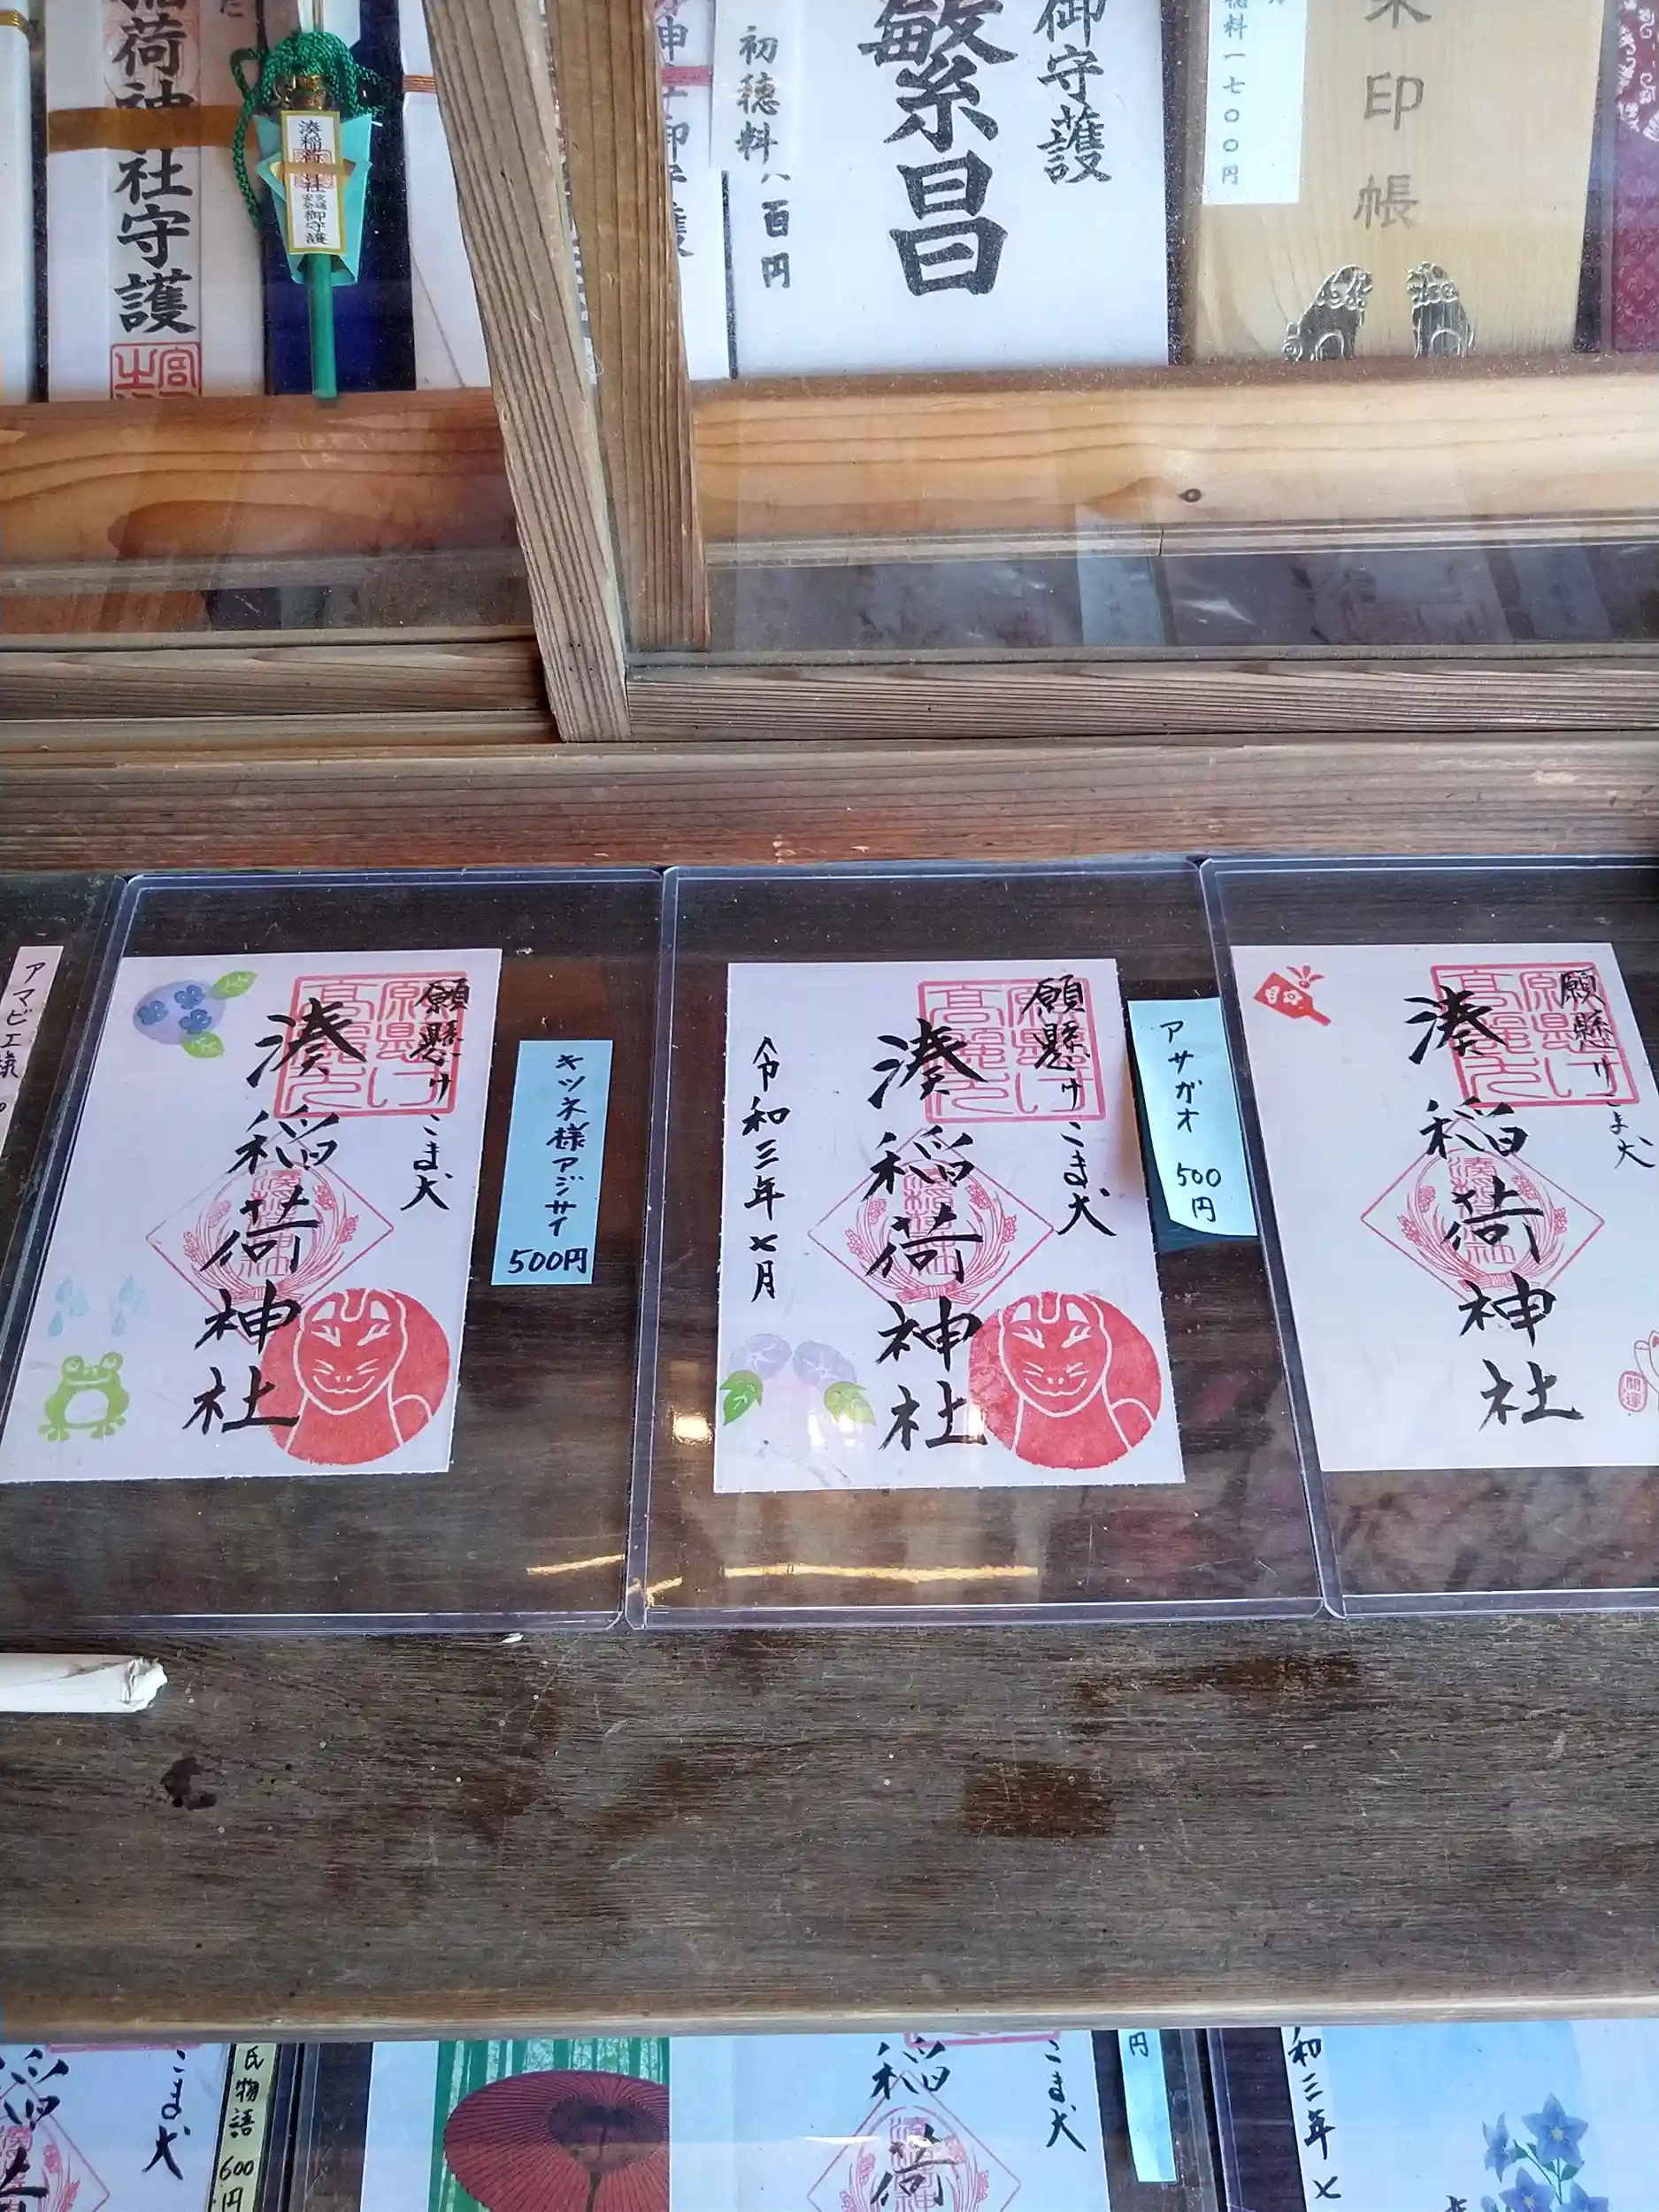 稲荷神社守護
湊稲荷神社
交通安全御守護
初穂料
百円
繁昌
御守護
穂料一七〇〇円
朱印帳
アマビエ様
願懸け
こま犬
湊稲荷神社
キツネ様アジサイ
500円
願懸け
こま犬
湊稲荷神社
令和三年七月
アサガオ
500
円
願懸け
こま犬
湊稲荷神社
開運
こま犬
稲荷
氏物語
600
円
こま犬
稲荷
円
和三年七